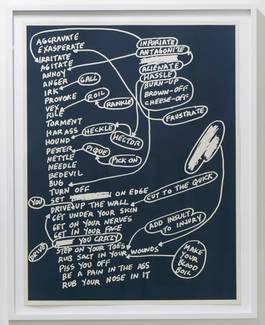 AGGRAVATE
EXASPERATE
IRRITATE
AGITATE
ANNOY
ANGER
GALL
IRK
PROVOKE
ROIL
VEX
RANKLE
RILE
TORMENT
HARASS
HECKLE
HOUND
HECTOR
PESTER
PIQUE
NETTLE
PICK ON
NEEDLE
BEDEVIL
BUG
TURN OFF
INFURIATE
ANTAGONIZE
ALIENATE
HASSLE
BURN-UP
BROWN-OFF
CHEESE-OFF
FRUSTRATE
YOU
SET ON EDGE
DRIVE UP THE WALL
CUT TO THE QUICK
GET UNDER YOUR SKIN
GET ON YOUR NERVES
GET IN YOUR FACE
ADD INSULT TO INJURY
DRIVE
YOU CRAZY
STEP ON YOUR TOES
RUB SALT IN YOUR WOUNDS
PISS YOU OFF
BE A PAIN IN THE ASS
RUB YOUR NOSE IN IT
MAKE YOUR BLOOD BOIL